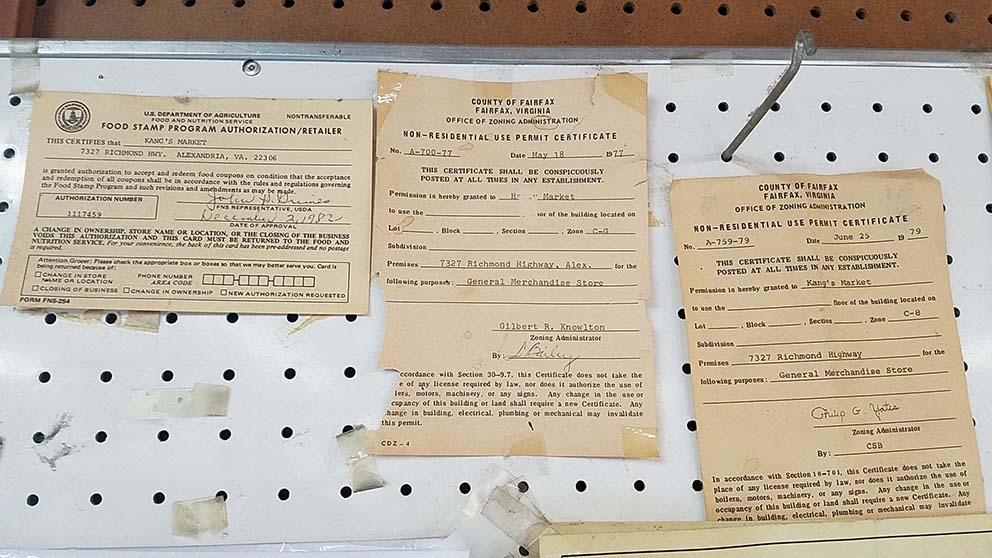 U.S. DEPARTMENT OF AGRICULTURE NONTRANSFERABLE
FOOD AND NUTRITION SERVICE
FOOD STAMP PROGRAM AUTHORIZATION/RETAILER
THIS CERTIFIES that KANG'S MARKET
7327 RICHMOND HWY. ALEXANDRIA, VA. 22306
is granted authorization to accept and redeem food coupons on condition that the acceptance
and redemption of all coupons shall be in accordance with the rules and regulations governing
the Food Stamp Program and such revisions and amendments as may be made.
AUTHORIZATION NUMBER
1117459
FNS REPRESENTATIVE, USDA
December 2, 1982
DATE OF APPROVAL
A CHANGE IN OWNERSHIP, STORE NAME OR LOCATION, OR THE CLOSING OF THE BUSINESS
VOIDS THIS AUTHORIZATION AND THIS CARD MUST BE RETURNED TO THE FOOD AND
NUTRITION SERVICE. For your convenience, the back of this card has been pre-addressed and no postage
is required.
Attention Grocer: Please check the appropriate box or boxes so that we may better serve you. Card is
being returned because of:
CHANGE IN STORE NAME OR LOCATION
PHONE NUMBER
AREA CODE
CLOSING OF BUSINESS CHANGE IN OWNERSHIP NEW AUTHORIZATION REQUESTED
FORM FNS-254
COUNTY OF FAIRFAX
FAIRFAX, VIRGINIA
OFFICE OF ZONING ADMINISTRATION
NON-RESIDENTIAL USE PERMIT CERTIFICATE
No. A-700-77 Date May 18 1977
THIS CERTIFICATE SHALL BE CONSPICUOUSLY
POSTED AT ALL TIMES IN ANY ESTABLISHMENT.
Permission is hereby granted to Market
to use the oor of the building located on
Lot , Block , Section , Zone C-G
Subdivision
Premises 7327 Richmond Highway, Alex. for the
following purposes: General Merchandise Store
Gilbert R. Knowlton
Zoning Administrator
By: Bailey
ccordance with Section 30-9.7, this Certificate does not take the
e of any license required by law, nor does it authorize the use of
lers, motors, machinery, or any signs. Any change in the use or
ccupancy of this building or land shall require a new Certificate. Any
change in building, electrical, plumbing or mechanical may invalidate
this permit.
CDZ-4
COUNTY OF FAIRFAX
FAIRFAX, VIRGINIA
OFFICE OF ZONING ADMINISTRATION
NON-RESIDENTIAL USE PERMIT CERTIFICATE
No. A-759-79 Date June 25 1979
THIS CERTIFICATE SHALL BE CONSPICUOUSLY
POSTED AT ALL TIMES IN ANY ESTABLISHMENT.
Permission is hereby granted to Kang's Market
to use the floor of the building located on
Lot , Block , Section , Zone C-8
Subdivision
Premises 7327 Richmond Highway for the
following purposes: General Merchandise Store
Philip G. Yates
Zoning Administrator
By: CSB
In accordance with Section 18-701, this Certificate does not take the
place of any license required by law, nor does it authorize the use of
boilers, motors, machinery, or any signs. Any change in the use or
occupancy of this building or land shall require a new Certificate. Any
change in building, electrical, plumbing or mechanical may invalidate